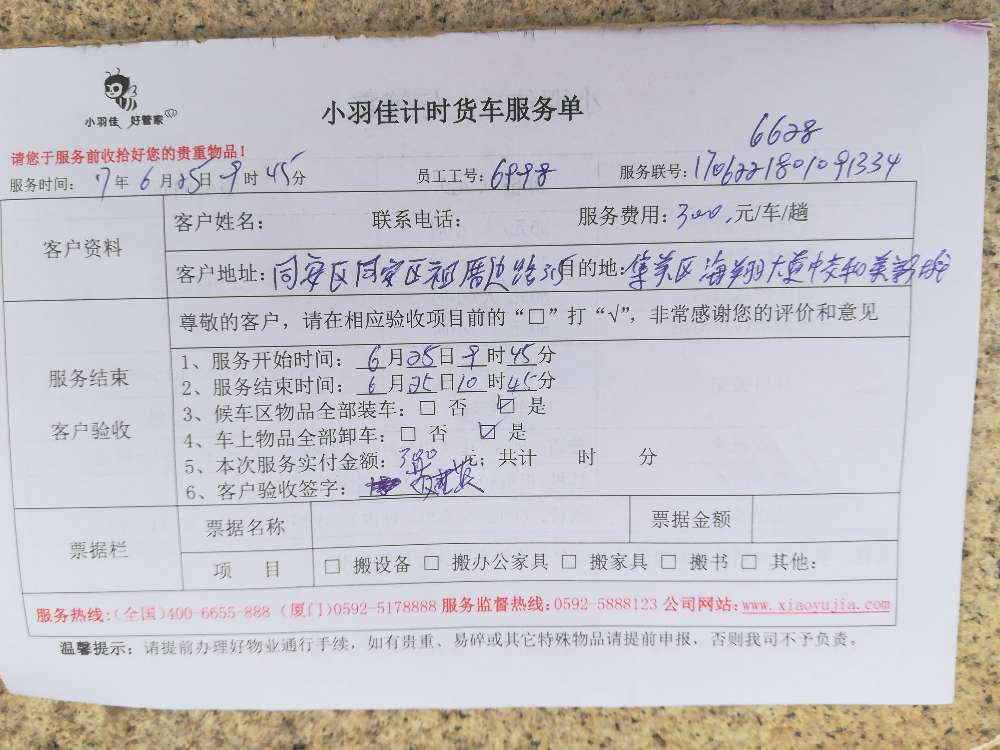 小羽佳 好管家
小羽佳计时货车服务单
6628
请您于服务前收拾好您的贵重物品！
服务时间： 17年6月25日9时45分 员工工号：6998 服务联号：1706221801091334
客户资料
客户姓名： 联系电话： 服务费用：300元/车/趟
客户地址：同安区同安区祖厝边路35 目的地：集美区海翔大道中交和美新城
服务结束
客户验收
尊敬的客户，请在相应验收项目前的“□”打“√”，非常感谢您的评价和意见
1、服务开始时间： 6月25日9时45分
2、服务结束时间： 6月25日10时45分
3、候车区物品全部装车：□ 否 ☑ 是
4、车上物品全部卸车：□ 否 ☑ 是
5、本次服务实付金额：300元；共计 时 分
6、客户验收签字：
票据栏
票据名称 票据金额
项 目 □ 搬设备 □ 搬办公家具 □ 搬家具 □ 搬书 □ 其他：
服务热线：(全国)400-6655-888 (厦门)0592-5178888 服务监督热线：0592-5888123 公司网站：www.xiaoyujia.com
温馨提示：请提前办理好物业通行手续，如有贵重、易碎或其它特殊物品请提前申报，否则我司不予负责。